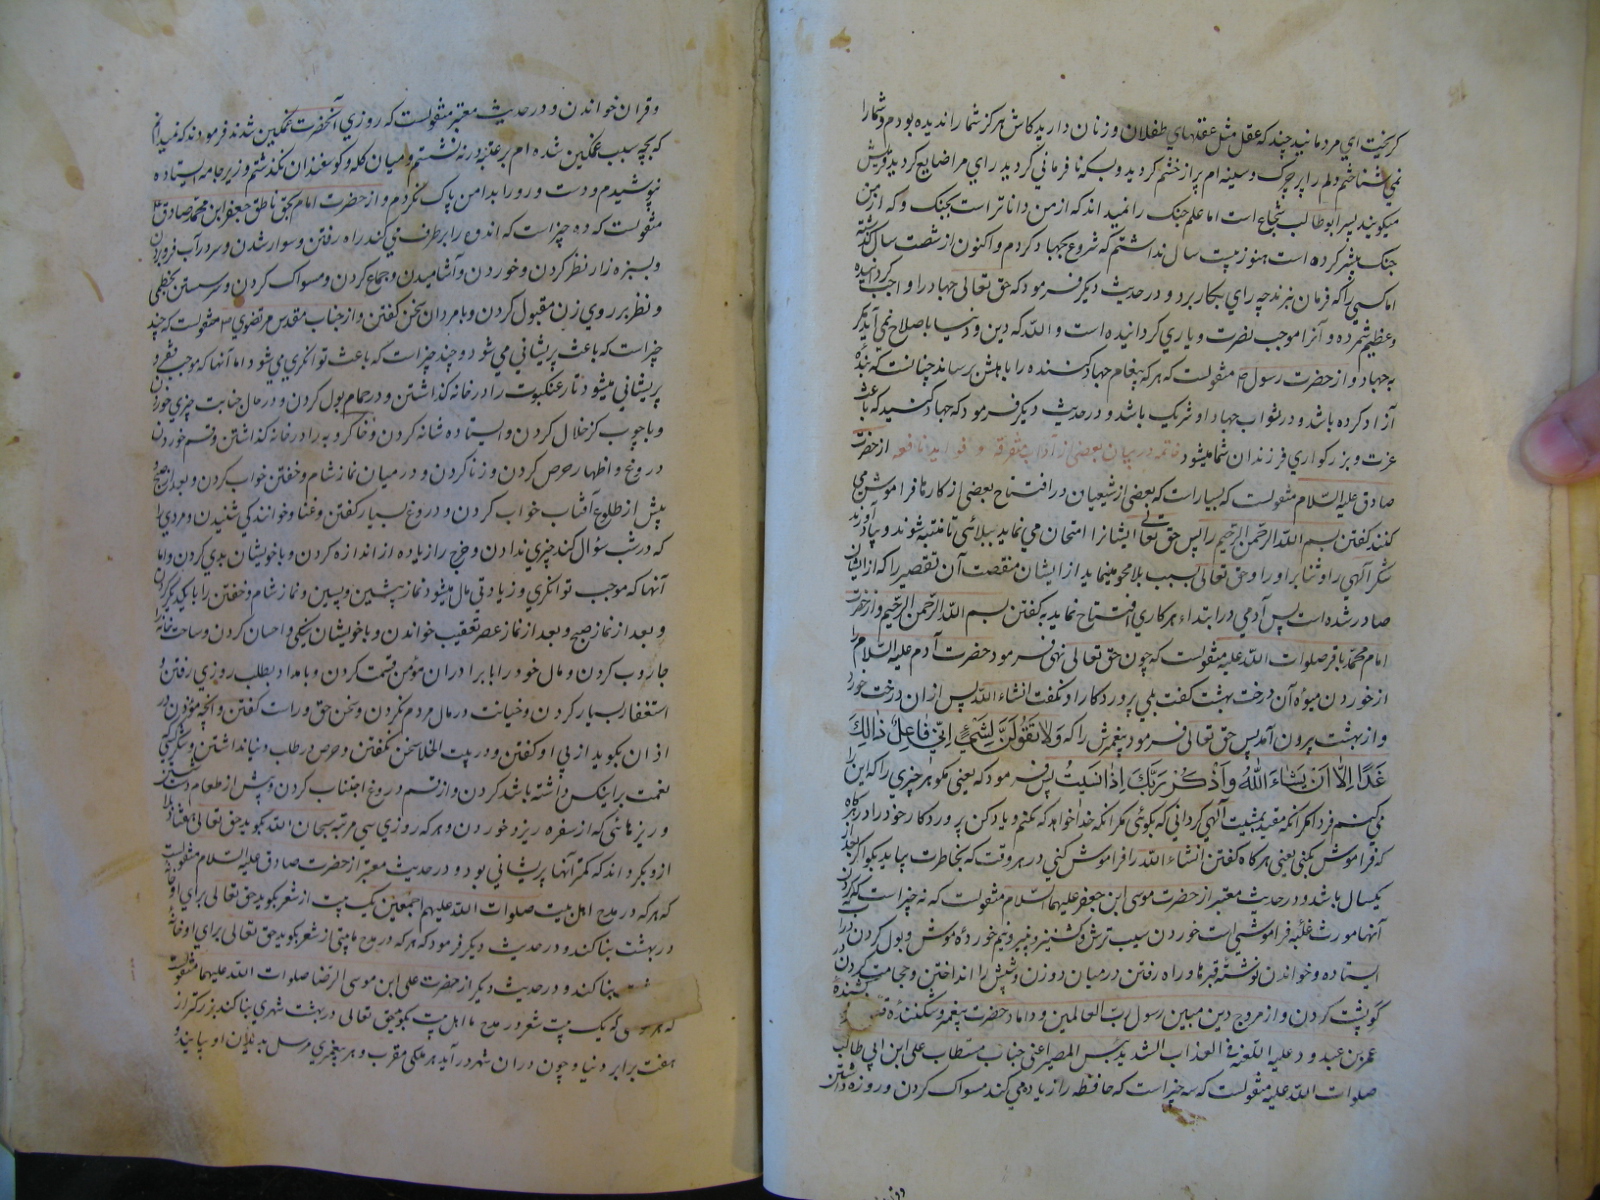 کریخت ای مرد مانید چند که عقل مثل عقلهای طفلان و زنان دارید کاش هرگز شما را ندیده بودم و شما را
نمی شناختم دلم را پر چرک و سینه ام پر از خشم کردید و بسکه نا فرمانی کردید رای مرا ضایع کردید و قریش
میکویند پسر ابو طالب شجاع است اما علم جنک را نمیداند که از من داناتر است بجنک و که از من
جنک بیشتر کرده است هنوز بیست سال نداشتم که شروع بجهاد کردم و اکنون از شصت سال گذشته
اما کسی را که فرمان نبرند چه رای بکار برد و در حدیث دیگر فرمود که حق تعالی جهاد را واجب گردانیده
و عظیم شمرده و آنرا موجب نصرت و یاری گردانیده است و الله که دین و دنیا باصلاح نمی آید مگر
به جهاد و از حضرت رسول ص منقولست که هر که پیغام جهاد کننده را باهلش برساند چنانست که بنده
آزاد کرده باشد و در ثواب جهاد او شریک باشد و در حدیث دیگر فرمود که جهاد کنید که باعث
عزت و بزرکواری فرزندان شما میشود خاتمه در بیان بعضی از آداب متفرقه و فواید نافعه از حضرت
صادق علیه السلام منقولست که بسیار است که بعضی از شیعیان در افتتاح بعضی از کارها فراموش می
کنند گفتن بسم الله الرحمن الرحیم را پس حق تعالی ایشانرا امتحان می نماید ببلائی تا متنبه شوند و بیاد آورند
شکر آلهی را و ثنا بر او را و حق تعالی بسبب بلا محو مینماید از ایشان منقصت آن تقصیر را که از ایشان
صادر شده است پس آدمی در ابتداء هر کاری افتتاح نماید به گفتن بسم الله الرحمن الرحیم و از حضرت
امام محمد باقر صلوات الله علیه منقولست که چون حق تعالی نهی فرمود حضرت آدم علیه السلام را
از خوردن میوه آن درخت بهشت گفت بلی پروردکارا و نکفت انشاء الله پس از ان درخت خورد
و از بهشت بیرون آمد پس حق تعالی فرمود پیغمبرش را که وَلا تَقُولَنَّ لِشَیْءٍ اِنّی فاعِلٌ ذالِكَ
غَدًا اِلّا اَنْ یَشاءَ اللهُ وَاذْکُرْ رَبَّكَ اِذا نَسیتَ پس فرمود که یعنی مکو هر چیزی را که این را
می کنم فردا مکر آنکه مقید بمشیت آلهی گردانی که بکوئی مکر آنکه خدا خواهد که نکنم و یاد کن پروردکار خود را در هرگاه
که فراموش بکنی یعنی هرگاه گفتن انشاء الله را فراموش کنی در هر وقت که بخاطرت بیاید بکو اگر بعد از
یکسال باشد و در حدیث معتبر از حضرت موسی ابن جعفر علیهما السلام منقولست که نه چیز است که کردن
آنها مورث غلبه فراموشی است خوردن سیب ترش و کشنیز و پنیر و نیم خورده موش و بول کردن در آب
ایستاده و خواندن نوشته قبرها و راه رفتن در میان دو زن و شپش را انداختن و حجامت کردن در
کو پشت کردن و از مروج دین مبین رسول رب العالمین و داماد حضرت پیغمبر و شکننده
عمر بن عبدود علیه اللعنة فی العذاب الشدید بئس المصیر اعنی جناب مستطاب علی ابن ابی طالب
صلوات الله علیه منقولست که سه چیز است که حافظه را زیاده می کند مسواک کردن و روزه داشتن
و قران خواندن و در حدیث معتبر منقولست که روزی آنحضرت غمکین شدند فرمودند که نمیدانم
که بچه سبب غمکین شده ام بر عتبه در نه نشستم و میان گله و کوسفندان نکذشتم و زیر جامه ایستاده
نپوشیدم و دست و رو را بدامن پاک نکردم و از حضرت امام بحق ناطق جعفر ابن محمد صادق ع
منقولست که ده چیز است که اندوه را برطرف می کند راه رفتن و سوار شدن و سر در آب فرو بردن
و بسبزه زار نظر کردن و خوردن و آشامیدن و جماع کردن و مسواک کردن و سر شستن بخطمی
و نظر بر روی زن مقبول کردن و با مردان سخن گفتن و از جناب مقدس مرتضوی ع منقولست که چند
چیز است که باعث پریشانی می شود و چند چیز است که باعث توانکری می شود اما آنها که موجب فقر و
پریشانی میشود تار عنکبوت را در خانه گذاشتن و در حمام بول کردن و در حال جنابت چیزی خوردن
و با چوب گز خلال کردن و ایستاده شانه کردن و خاکروبه را در خانه گذاشتن و قسم خوردن
دروغ و اظهار حرص کردن و زنا کردن و در میان نماز شام و خفتن خواب کردن و بعد از صبح و
پیش از طلوع آفتاب خواب کردن و دروغ بسیار گفتن و غنا و خوانندگی شنیدن و مردی را
که در شب سؤال کند چیزی ندادن و خرج را زیاده از اندازه کردن و با خویشان بدی کردن و اما
آنها که موجب توانکری و زیادتی مال میشود نماز پیشین و پسین و نماز شام و خفتن را با یکدیگر کردن
و بعد از نماز صبح و بعد از نماز عصر تعقیب خواندن و با خویشان نیکی و احسان کردن و ساحت خانه را
جاروب کردن و مال خود را با برادران مؤمن قسمت کردن و بامداد بطلب روزی رفتن و
استغفار بسیار کردن و خیانت در مال مردم نکردن و سخن حق و راست گفتن و آنچه مؤذن در
اذان بکوید از پی او گفتن و در بیت الخلا سخن نکفتن و حرص در طلب دنیا نداشتن و شکر کسی
نعمت بر اینکس داشته باشد کردن و از قسم دروغ اجتناب کردن و پیش از طعام دست شستن
و ریزهائی که از سفره ریزد خوردن و هر که روزی سی مرتبه سبحان الله بکوید حق تعالی هفتاد بلا
از و بگرداند که کمتر آنها پریشانی بود و در حدیث معتبر از حضرت صادق علیه السلام منقولست
که هر که در مدح اهل بیت صلوات الله علیهم اجمعین یک بیت از شعر بکوید حق تعالی برای او خانه
در بهشت بنا کند و در حدیث دیگر فرمود که هر که در مدح ما بیتی از شعر بکوید حق تعالی برای او خانه
بنا کند و در حدیث دیگر از حضرت علی ابن موسی الرضا صلوات الله علیهما منقولست
که هر که یک بیت شعر در مدح ما اهل بیت بکوید حق تعالی در بهشت شهری بنا کند بزرکتر از
هفت برابر دنیا و چون در ان شهر در آید هر ملکی مقرب و هر پیغمبری مرسل بدیدن او بیایند و